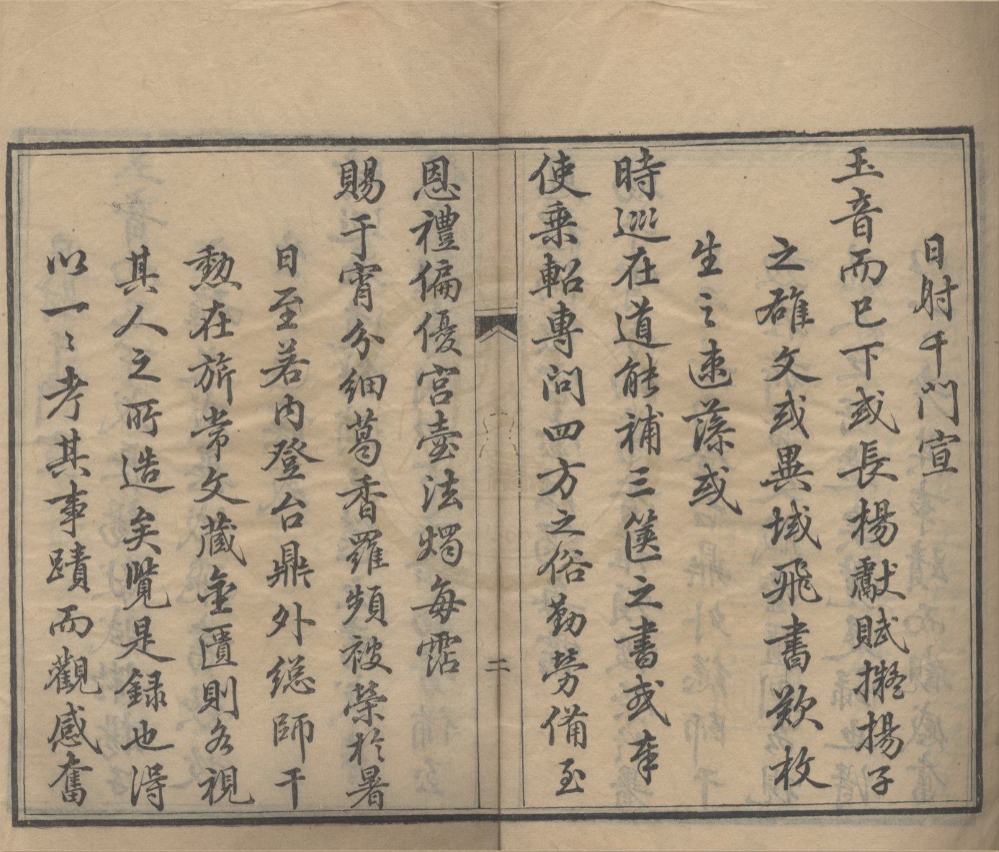 日射千門宣
玉音而已下或長楊獻賦擬揚子
之雄文或異域飛書歎枚
生之速藻或
時巡在道能補三篋之書或奉
使乘軺專問四方之俗勤勞備至
二
恩禮偏優宮壺法燭每霑
賜于宵分細葛香羅頻被榮於暑
日至若内登台鼎外總師干
勲在旂常文藏金匱則各視
其人之所造矣覽是録也得
以一〻考其事蹟而觀感奮